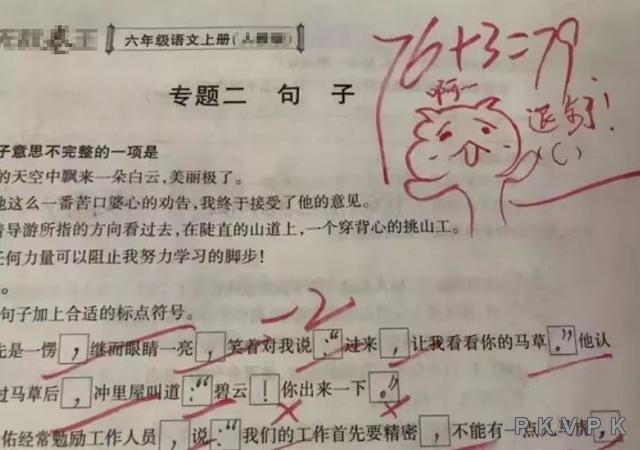 六年级语文上册(人教版)
76+3=79
专题二 句子
啊一
退步了!
子意思不完整的一项是
( C )
的天空中飘来一朵白云,美丽极了。
他这么一番苦口婆心的劝告,我终于接受了他的意见。
着导游所指的方向看过去,在陡直的山道上,一个穿背心的挑山工。
任何力量可以阻止我努力学习的脚步!
。
句子加上合适的标点符号。
-2
先是一愣,继而眼睛一亮,笑着对我说:“过来,让我看看你的马草。”他认
过马草后,冲里屋叫道:“碧云!你出来一下。”
佑经常勉励工作人员,说:“我们的工作首先要精密,不能有一点儿马虎,
PKVPK